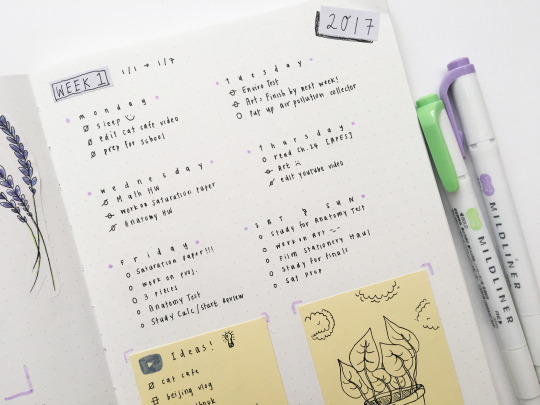 2017
WEEK 1
1/1 → 1/7
monday
sleep
edit cat cafe video
prep for school
tuesday
Enviro Test
Art: Finish by next week!
Put up air pollution collector
wednesday
Math HW
work on saturation paper
Anatomy HW
thursday
read Ch.14 [APES]
Art
edit youtube video
friday
Saturation paper!!!
work on proj.
3 pieces
Anatomy Test
Study Calc/Start Review
SAT & SUN
study for Anatomy Test
work on Art
film stationery haul
study for finals
SAT prep
Ideas!
cat cafe
beijing vlog
MILDLINER
MILDLINER